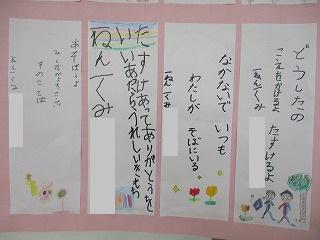 どうしたの
こえをかけるよ たすけるよ
一ねん一くみ
なかないで いつも
わたしが そばにいる
一ねん一くみ
たすけあってありがとうを
いいあったらうれしいきもち
一ねん一くみ
あそぼうよ
そのことば
一ねん一くみ